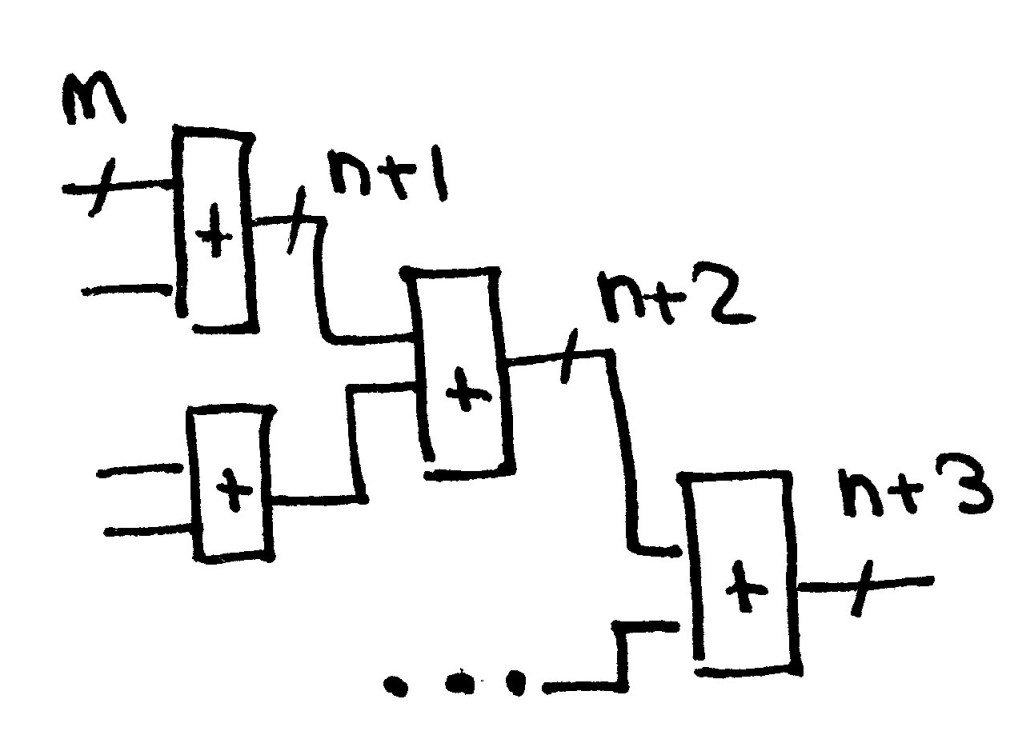 m
n+1
+
n+2
+
+
n+3
+
...